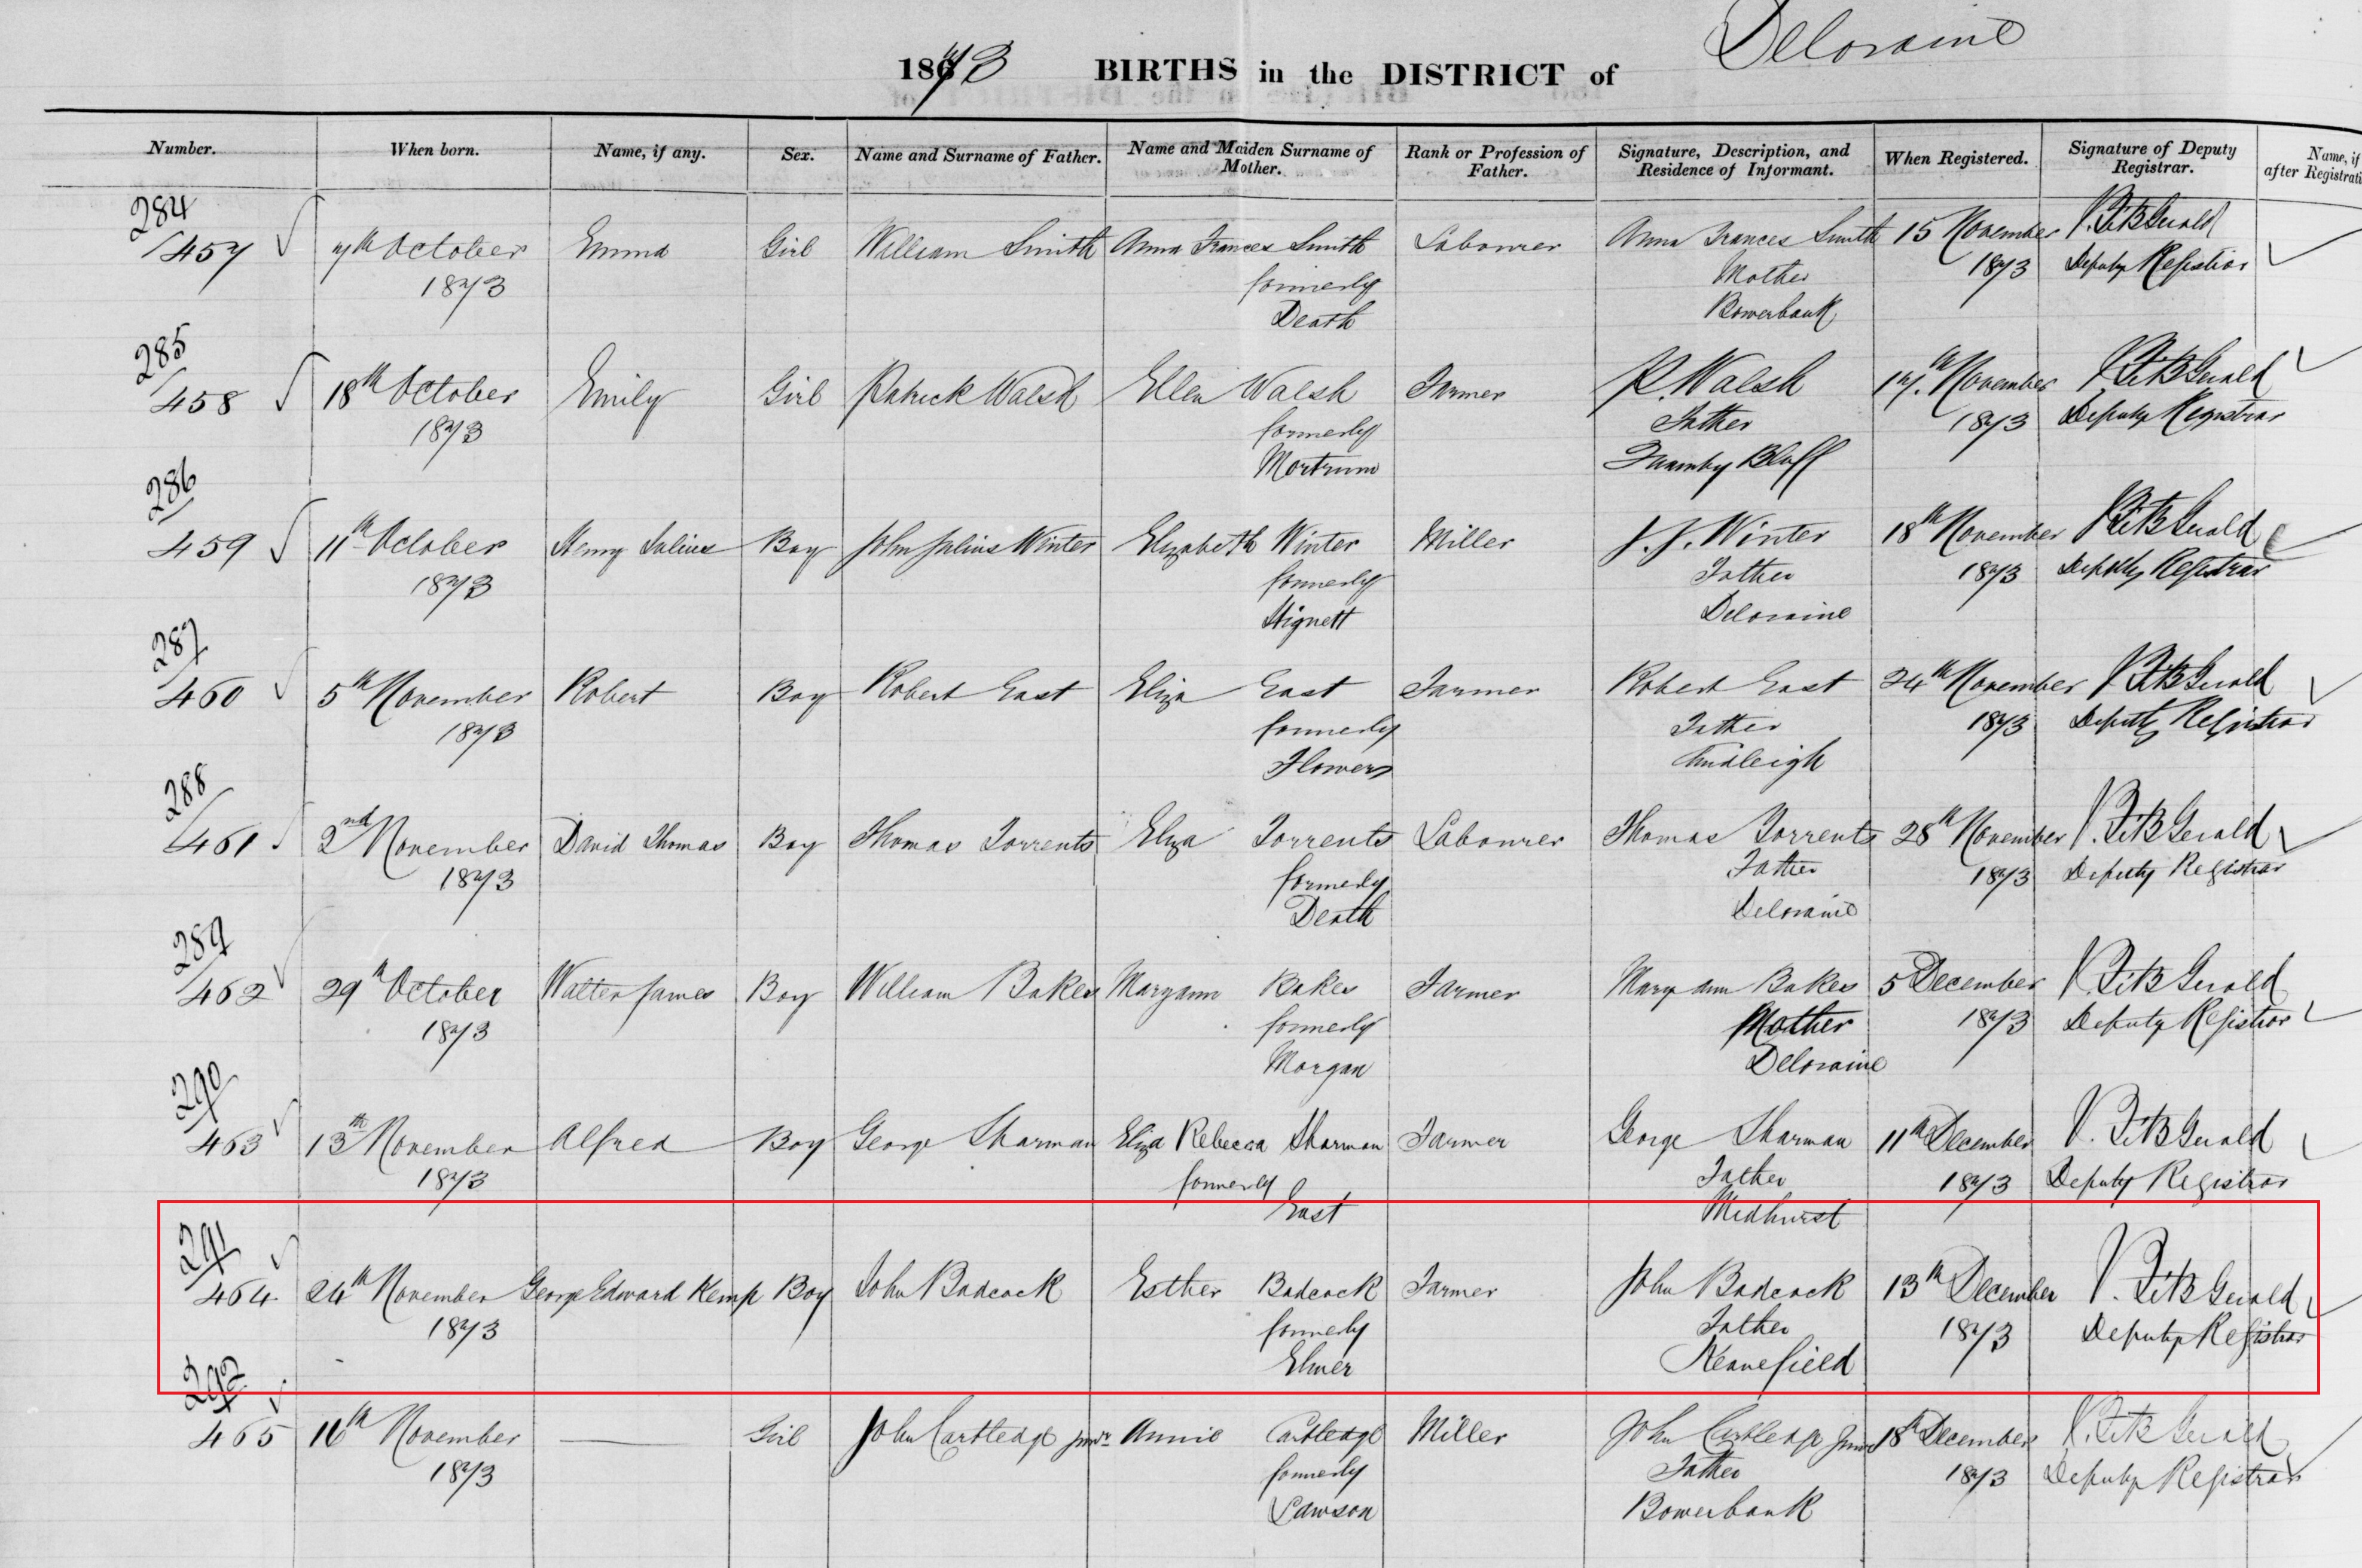 1873 BIRTHS in the DISTRICT of Deloraine
Number. When born. Name, if any. Sex. Name and Surname of Father. Name and Maiden Surname of Mother. Rank or Profession of Father. Signature, Description, and Residence of Informant. When Registered. Signature of Deputy Registrar. Name, if after Registrati
284
457 7th October Emma Girl William Smith Anna Frances Smith Labourer Anna Frances Smith 15 November V. FitzGerald
1873 formerly Mother 1873 Deputy Registrar
Death Bowerbank
285
458 18th October Emily Girl Patrick Walsh Ellen Walsh Farmer P. Walsh 17th November V. FitzGerald
1873 formerly Father 1873 Deputy Registrar
Mortrum Quamby Bluff
286
459 11th October Henry Julius Boy John Julius Winter Elizabeth Winter Miller J. J. Winter 18th November V. FitzGerald
1873 formerly Father 1873 Deputy Registrar
Hignett Deloraine
287
460 5th November Robert Boy Robert East Eliza East Farmer Robert East 24th November V. FitzGerald
1873 formerly Father 1873 Deputy Registrar
Flowers Chudleigh
288
461 2nd November David Thomas Boy Thomas Torrents Eliza Torrents Labourer Thomas Torrents 28th November V. FitzGerald
1873 formerly Father 1873 Deputy Registrar
Death Deloraine
289
462 29th October Walter James Boy William Bakes Maryann Bakes Farmer Mary ann Bakes 5 December V. FitzGerald
1873 formerly Mother 1873 Deputy Registrar
Morgan Deloraine
290
463 13th November Alfred Boy George Sharman Eliza Rebecca Sharman Farmer George Sharman 11th December V. FitzGerald
1873 formerly Father 1873 Deputy Registrar
East Midhurst
291
464 24th November George Edward Kemp Boy John Badcock Esther Badcock Farmer John Badcock 13th December V. FitzGerald
1873 formerly Father 1873 Deputy Registrar
Elmer Keanefield
292
465 16th November Girl John Cartledge junr Annie Cartledge Miller John Cartledge Junr 18th December V. FitzGerald
1873 formerly Father 1873 Deputy Registrar
Lawson Bowerbank